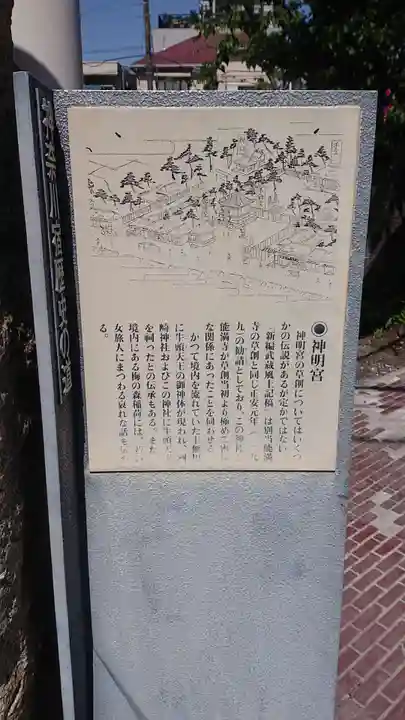 神奈川宿歴史の道
◉神明宮
神明宮の草創についてはいくつ
かの伝説があるが定かではない。
『新編武蔵風土記稿』は別当能満
寺の草創と同じ正安元年
九)の勧請としており、この神社
能満寺が草創当初より極めて密
な関係にあったことを伺わせる。
かつて境内を流れていた上無川
に牛頭天王の御神体が現われ、洲
崎神社およびこの神社に牛頭天王
を祠ったとの伝承もある。また、
境内にある梅の森稲荷には、若い
女旅人にまつわる哀れな話も伝わ
る。